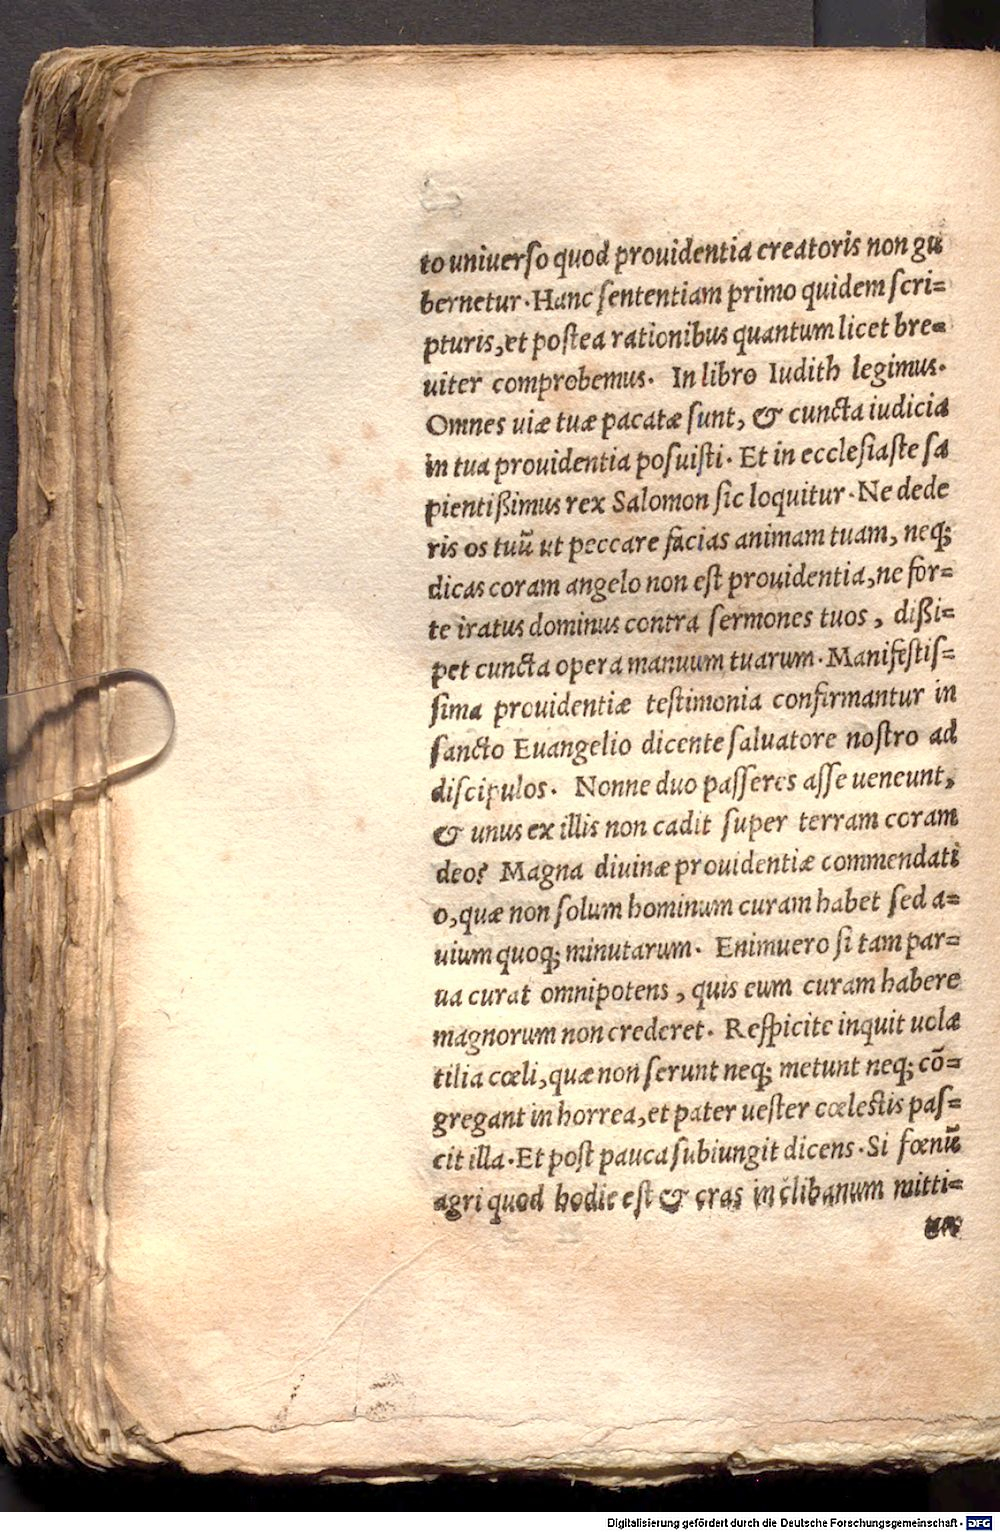 to uniuerſo quod prouidentia creatoris non gu
bernetur. Hanc ſententiam primo quidem ſcri=
pturis, et poſtea rationibus quantum licet bre=
uiter comprobemus. In libro Iudith legimus.
Omnes uiæ tuæ pacatæ ſunt, & cuncta iudicia
in tua prouidentia poſuiſti. Et in eccleſiaſte ſa
pientißimus rex Salomon ſic loquitur. Ne dede
ris os tuū ut peccare facias animam tuam, neq;
dicas coram angelo non eſt prouidentia, ne for=
te iratus dominus contra ſermones tuos, dißi=
pet cuncta opera manuum tuarum. Manifeſtiſ=
ſima prouidentiæ teſtimonia confirmantur in
ſancto Euangelio dicente ſaluatore noſtro ad
diſcipulos. Nonne duo paſſeres aſſe ueneunt,
& unus ex illis non cadit ſuper terram coram
deo? Magna diuinæ prouidentiæ commendati
o, quæ non ſolum hominum curam habet ſed a=
uium quoq; minutarum. Enimuero ſi tam par=
ua curat omnipotens, quis eum curam habere
magnorum non crederet. Reſpicite inquit uola
tilia cœli, quæ non ſerunt neq; metunt neq; cō=
gregant in horrea, et pater ueſter cœleſtis paſ=
cit illa. Et poſt pauca ſubiungit dicens. Si fœnū
agri quod hodie eſt & cras in clibanum mitti=
tur
Digitalisierung gefördert durch die Deutsche Forschungsgemeinschaft - DFG